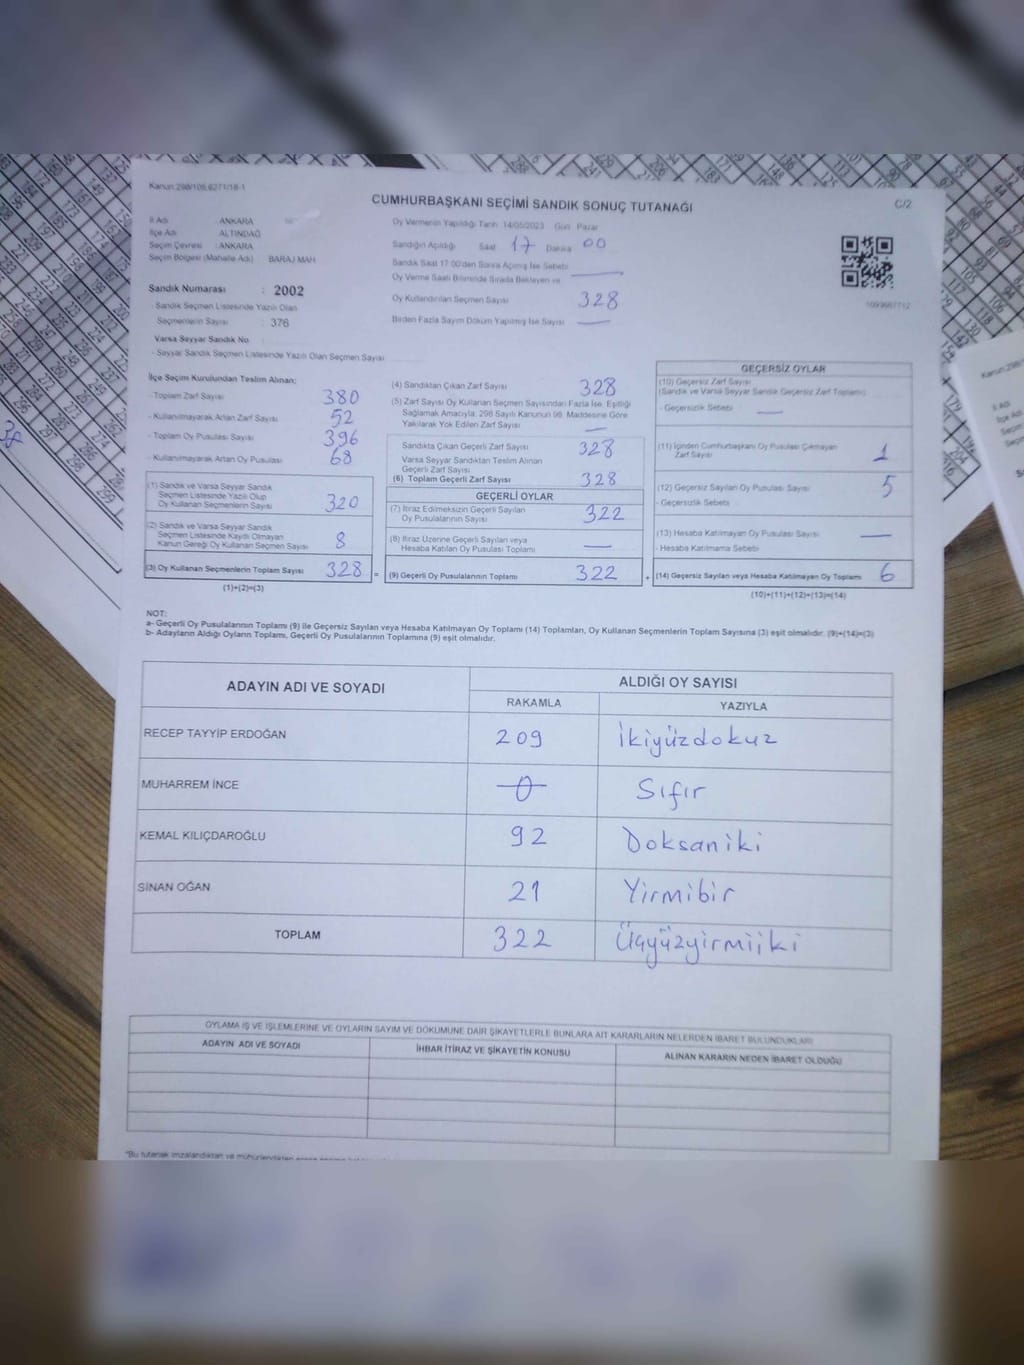 Kanun 298/105,6271/18-1
CUMHURBAŞKANI SEÇİMİ SANDIK SONUÇ TUTANAĞI
C/2
İl Adı : ANKARA
İlçe Adı : ALTINDAĞ
Seçim Çevresi : ANKARA
Seçim Bölgesi (Mahalle Adı) : BARAJ MAH
Sandık Numarası : 2002
- Sandık Seçmen Listesinde Yazılı Olan
Seçmenlerin Sayısı : 376
Varsa Seyyar Sandık No
- Seyyar Sandık Seçmen Listesinde Yazılı Olan Seçmen Sayısı
Oy Vermenin Yapıldığı Tarih 14/05/2023 Gün Pazar
Sandığın Açıldığı Saat 17 Dakika 00
Sandık Saat 17.00'den Sonra Açılmış İse Sebebi
Oy Verme Saati Bitiminde Sırada Bekleyen ve
Oy Kullandırılan Seçmen Sayısı 328
Birden Fazla Sayım Döküm Yapılmış İse Sayısı —
İlçe Seçim Kurulundan Teslim Alınan;
- Toplam Zarf Sayısı 380
- Kullanılmayarak Artan Zarf Sayısı 52
- Toplam Oy Pusulası Sayısı 396
- Kullanılmayarak Artan Oy Pusulası 68
(1) Sandık ve Varsa Seyyar Sandık
Seçmen Listesinde Yazılı Olup
Oy Kullanan Seçmenlerin Sayısı 320
(2) Sandık ve Varsa Seyyar Sandık
Seçmen Listesinde Kayıtlı Olmayan
Kanun Gereği Oy Kullanan Seçmen Sayısı 8
(3) Oy Kullanan Seçmenlerin Toplam Sayısı 328 =
(1)+(2)=(3)
(4) Sandıktan Çıkan Zarf Sayısı 328
(5) Zarf Sayısı Oy Kullanan Seçmen Sayısından Fazla İse, Eşitliği
Sağlamak Amacıyla, 298 Sayılı Kanunun 98. Maddesine Göre
Yakılarak Yok Edilen Zarf Sayısı —
Sandıkta Çıkan Geçerli Zarf Sayısı 328
Varsa Seyyar Sandıktan Teslim Alınan
Geçerli Zarf Sayısı
(6) Toplam Geçerli Zarf Sayısı 328
GEÇERLİ OYLAR
(7) İtiraz Edilmeksizin Geçerli Sayılan
Oy Pusulalarının Sayısı 322
(8) İtiraz Üzerine Geçerli Sayılan veya
Hesaba Katılan Oy Pusulası Toplamı —
(9) Geçerli Oy Pusulalarının Toplamı 322 +
GEÇERSİZ OYLAR
(10) Geçersiz Zarf Sayısı
(Sandık ve Varsa Seyyar Sandık Geçersiz Zarf Toplamı)
- Geçersizlik Sebebi —
(11) İçinden Cumhurbaşkanı Oy Pusulası Çıkmayan
Zarf Sayısı 1
(12) Geçersiz Sayılan Oy Pusulası Sayısı 5
- Geçersizlik Sebebi
(13) Hesaba Katılmayan Oy Pusulası Sayısı —
- Hesaba Katılmama Sebebi
(14) Geçersiz Sayılan veya Hesaba Katılmayan Oy Toplamı 6
(10)+(11)+(12)+(13)=(14)
NOT:
a- Geçerli Oy Pusulalarının Toplamı (9) ile Geçersiz Sayılan veya Hesaba Katılmayan Oy Toplamı (14) Toplamları, Oy Kullanan Seçmenlerin Toplam Sayısına (3) eşit olmalıdır. (9)+(14)=(3)
b- Adayların Aldığı Oyların Toplamı, Geçerli Oy Pusulalarının Toplamına (9) eşit olmalıdır.
ADAYIN ADI VE SOYADI
ALDIĞI OY SAYISI
RAKAMLA YAZIYLA
RECEP TAYYİP ERDOĞAN 209 İkiyüzdokuz
MUHARREM İNCE 0 Sıfır
KEMAL KILIÇDAROĞLU 92 Doksaniki
SİNAN OĞAN 21 Yirmibir
TOPLAM 322 Üçyüzyirmiiki
OYLAMA İŞ VE İŞLEMLERİNE VE OYLARIN SAYIM VE DÖKÜMÜNE DAİR ŞİKAYETLERLE BUNLARA AİT KARARLARIN NELERDEN İBARET BULUNDUKLARI
ADAYIN ADI VE SOYADI İHBAR İTİRAZ VE ŞİKAYETİN KONUSU ALINAN KARARIN NEDEN İBARET OLDUĞU
*Bu tutanak imzalandıktan ve mühürlendikten